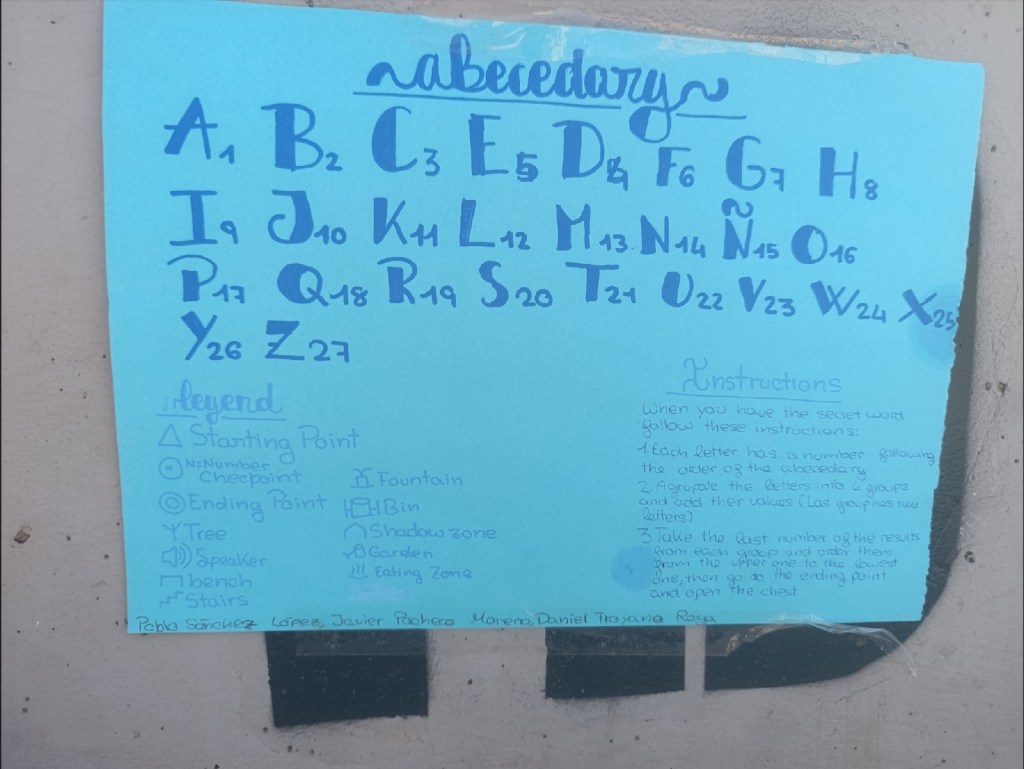 ~abecedary~
A1 B2 C3 E5 D4 F6 G7 H8
I9 J10 K11 L12 M13 N14 Ñ15 O16
P17 Q18 R19 S20 T21 U22 V23 W24 X25
Y26 Z27
legend
Starting Point
N=Number
Checpoint
Ending Point
Tree
Speaker
bench
Stairs
Fountain
Bin
Shadow zone
Garden
Eating Zone
Instructions
When you have the secret word
follow these instructions:
1. Each letter has a number following
the order of the abecedary
2. Agrupate the letters into groups
and add their values (Las group has two
letters)
3. Take the last number of the results
from each group and order them
from the upper one to the lowest
one, then go to the ending point
and open the chest
Pablo Sánchez López, Javier Pacheco Moreno, Daniel Troyano Raya